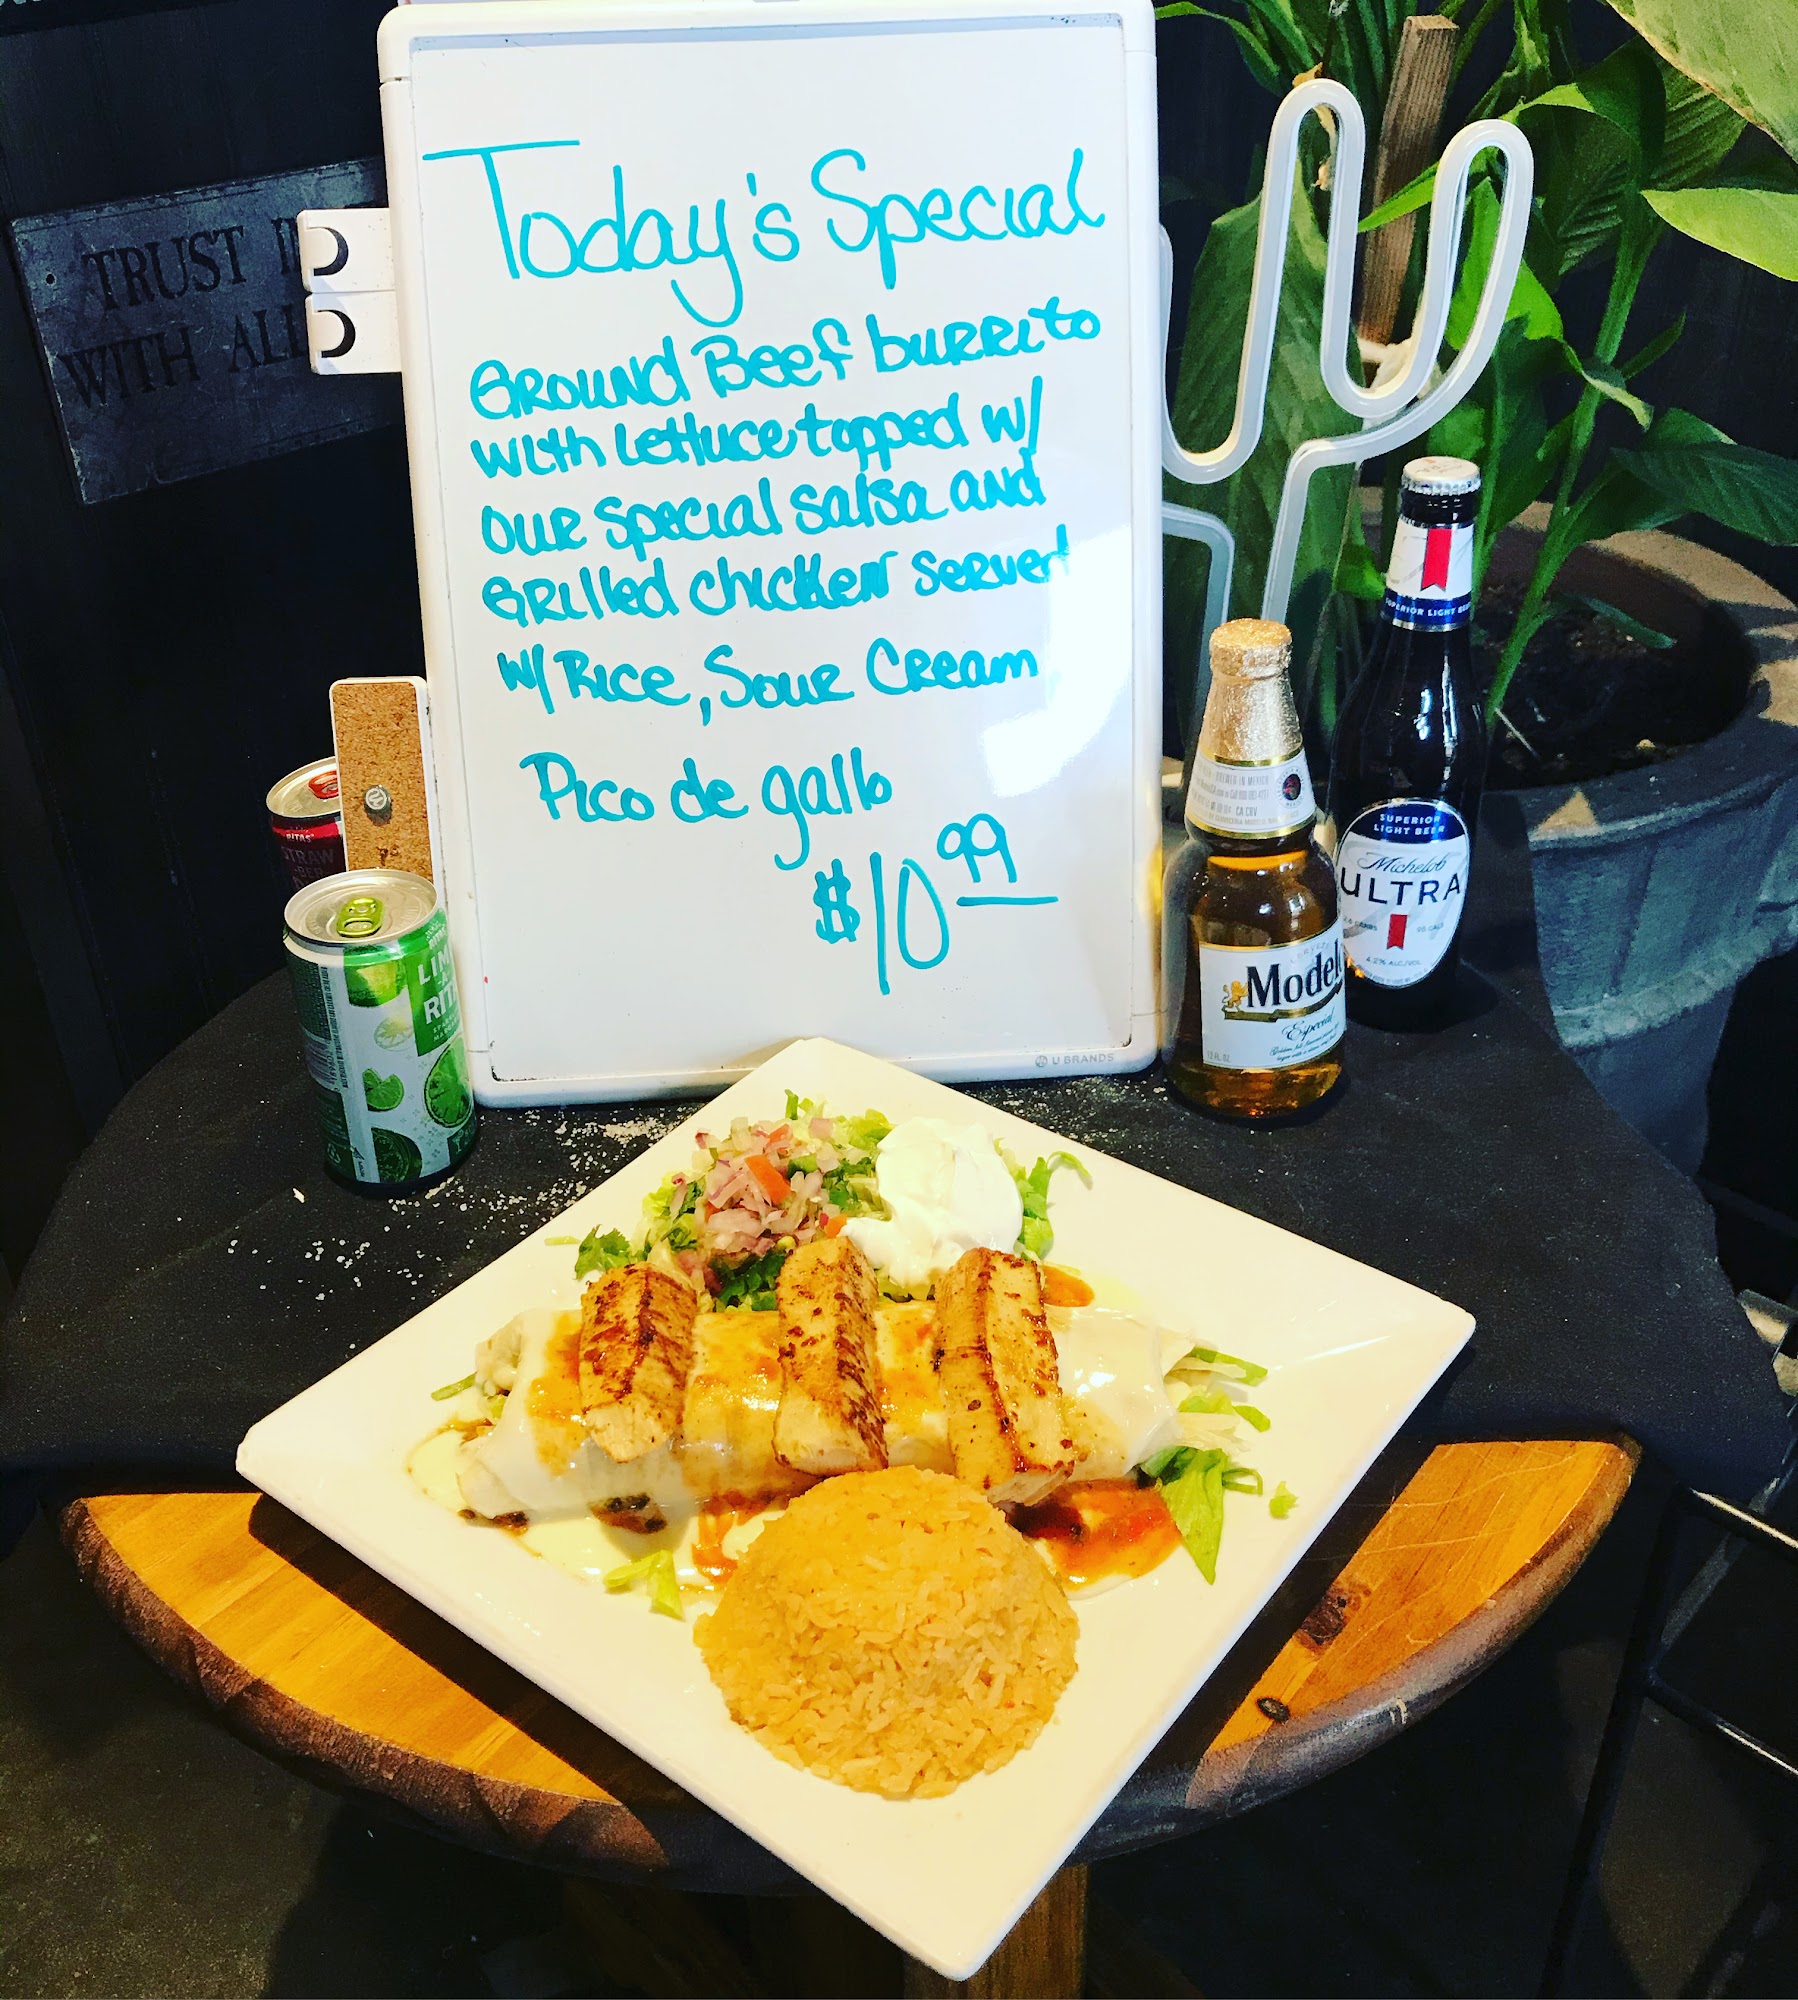 TRUST IN
WITH ALL
Today's Special
Ground Beef burrito
with lettuce topped w/
our special salsa and
Grilled chicken served
w/ Rice, Sour Cream
Pico de gallo
$10 99
U BRANDS
RITAS
STRAW
BER
LIM
RITA
BREWED IN MEXICO
CA CRV
Modelo
Especial
12 FL. OZ.
SUPERIOR LIGHT BEER
SUPERIOR
LIGHT BEER
Michelob
ULTRA
2.6 CARBS 95 CALS
4.2% ALC/VOL